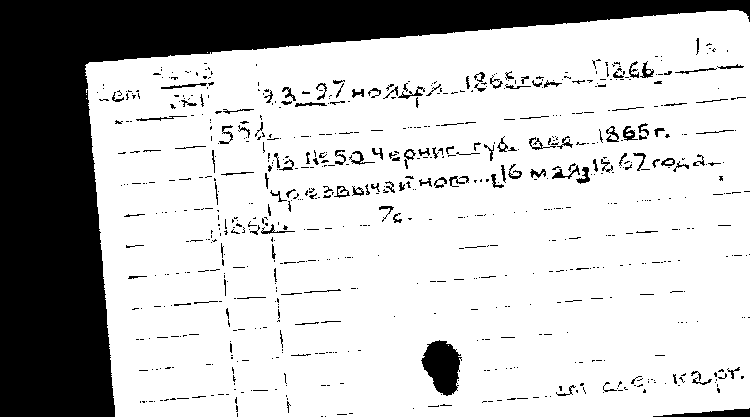 1з.
23-27 ноября 1865 года [1866]
55с.
Из №50 Черниг. губ. вед. 1865г.
чрезвычайного... [16 мая] 1867 года.
1868г. 7с.
см след. карт.